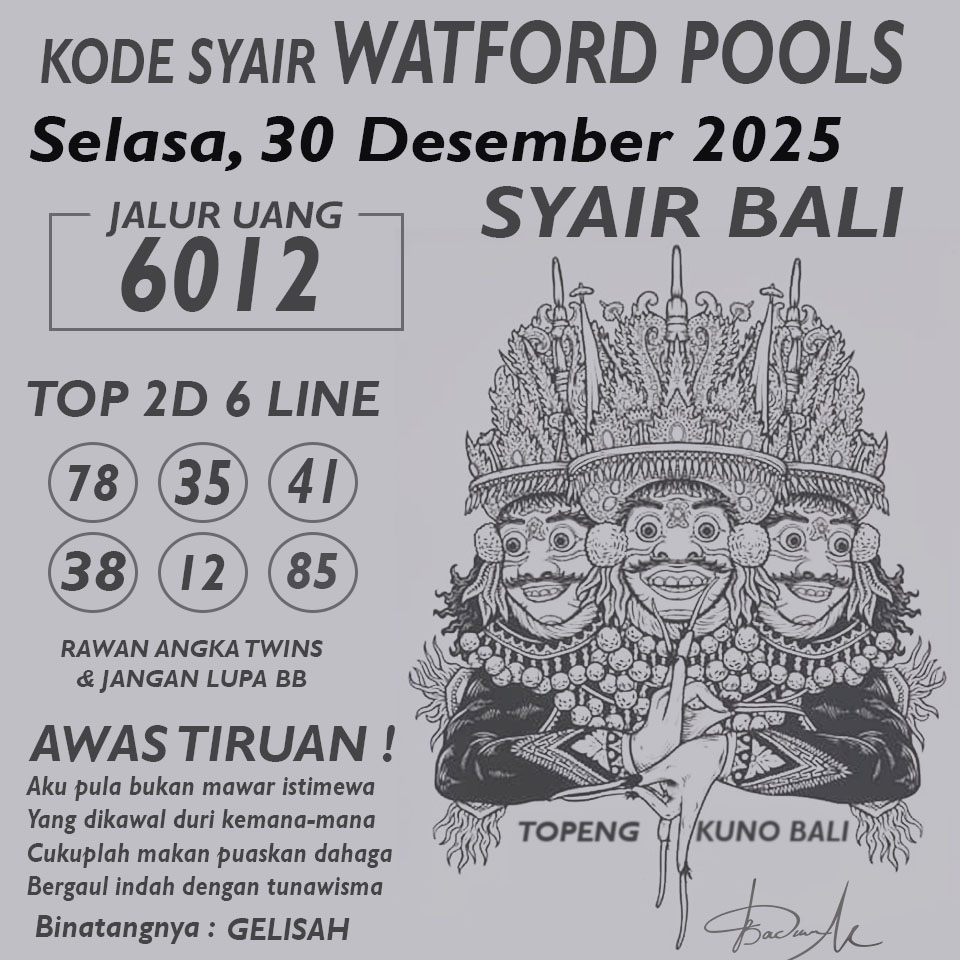 KODE SYAIR WATFORD POOLS
Selasa, 30 Desember 2025
SYAIR BALI
JALUR UANG
6012
TOP 2D 6 LINE
78 35 41
38 12 85
RAWAN ANGKA TWINS
& JANGAN LUPA BB
AWAS TIRUAN !
Aku pula bukan mawar istimewa
Yang dikawal duri kemana-mana
Cukuplah makan puaskan dahaga
Bergaul indah dengan tunawisma
Binatangnya : GELISAH
TOPENG KUNO BALI